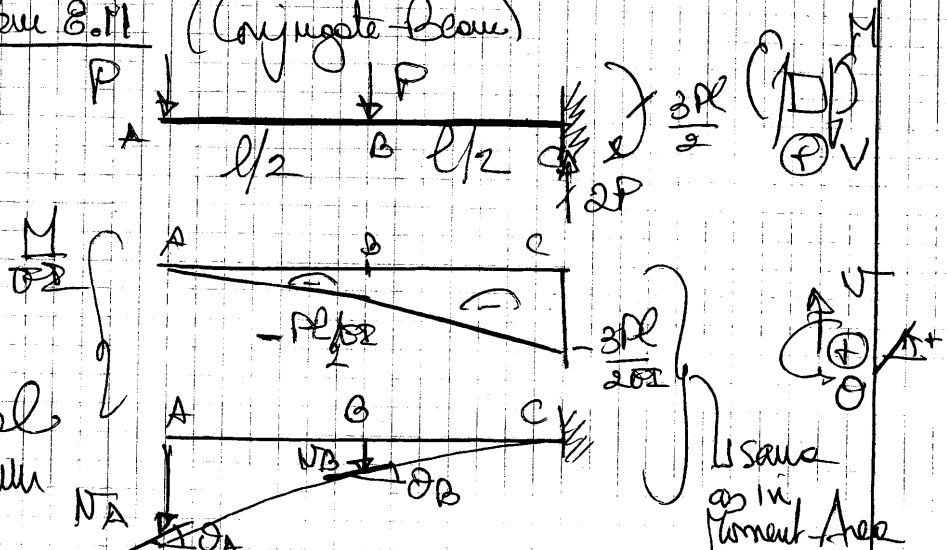 E.M (Conjugate-Beam)
P P
A B C
l/2 l/2
3Pl/2
2P
M
V
M/EI
A B C
- Pl/2EI
- 3Pl/2EI
(-) (-)
A B C
NB θB
NA θA
+
θ
same
as in
Moment-Area